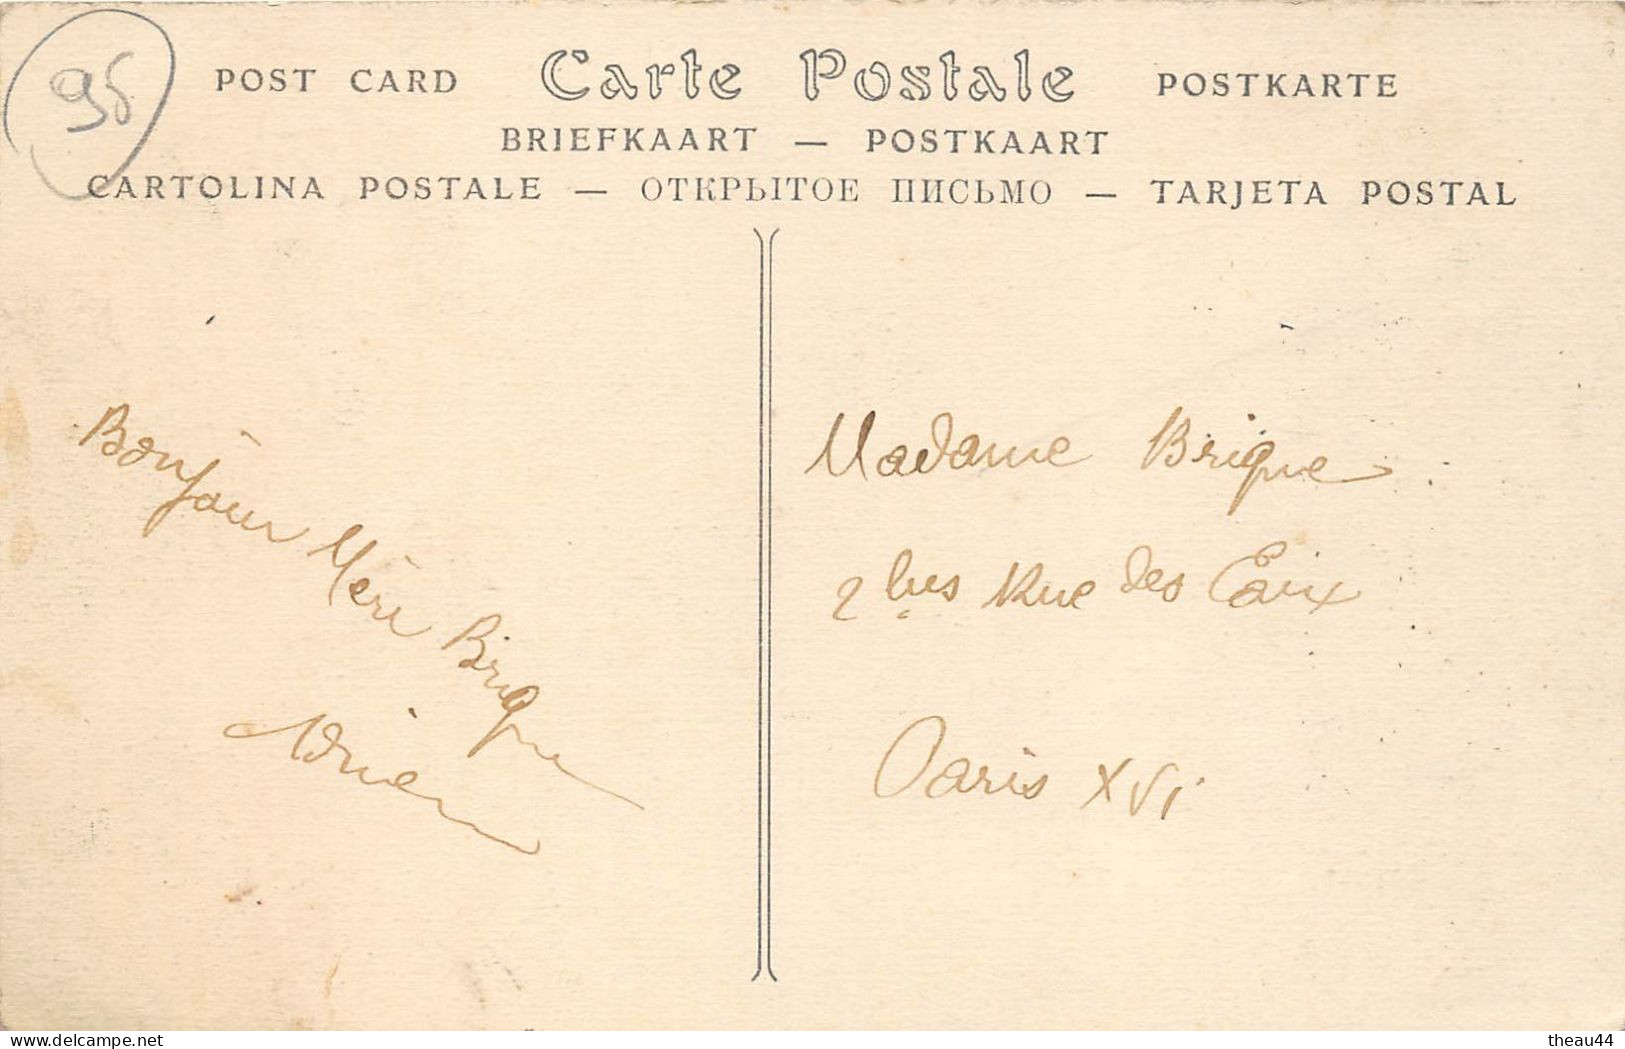 95
POST CARD Carte Postale POSTKARTE
BRIEFKAART — POSTKAART
CARTOLINA POSTALE — ОТКРЫТОЕ ПИСЬМО — TARJETA POSTAL
Bonjour Mère Brique
Adrien
Madame Brique
2 bis Rue des Eaux
Paris XVI
www.delcampe.net
theau44